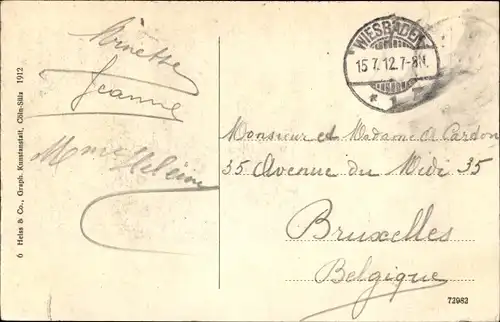 6 Heiss & Co., Graph. Kunstanstalt, Cöln-Sülz 1912
Minette
Jeanne
Mme Hélène
WIESBADEN
15 7. 12. 7-8N.
* 1
Monsieur et Madame A. Cardon
35 Avenue du Midi 35
Bruxelles
Belgique
72982